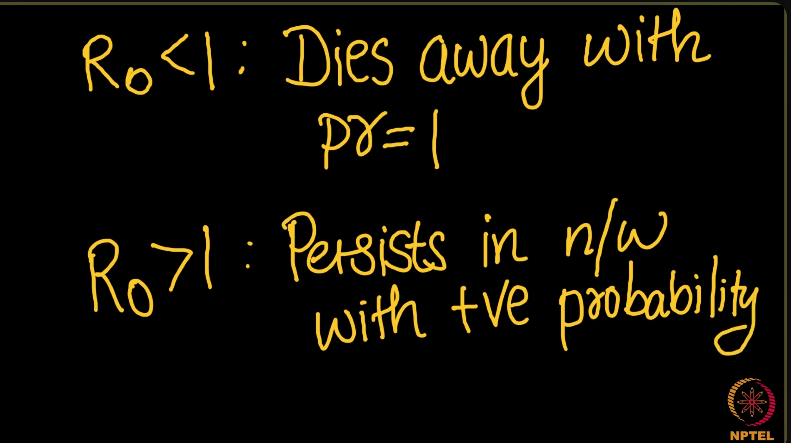 R₀<1: Dies away with
pr=1
R₀>1: Persists in n/w
with +ve probability
NPTEL